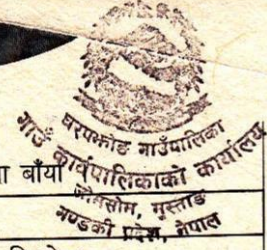 घरपझोङ गाउँपालिका
गाउँ कार्यपालिकाको कार्यालय
ा बाँया
जोमसोम, मुस्ताङ
गण्डकी प्रदेश, नेपाल